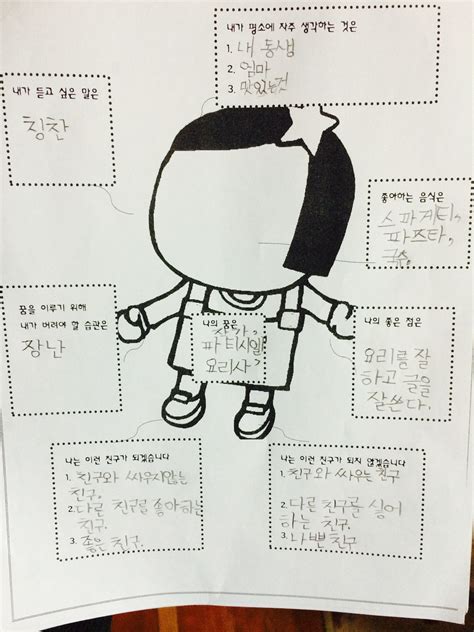 내가 평소에 자주 생각하는 것은
1. 내 동생
2. 엄마
3. 맛있는것
내가 듣고 싶은 말은
칭찬
좋아하는 음식은
스파게티,
파즈타,
국수.
꿈을 이루기 위해
내가 버려야 할 습관은
장난
나의 꿈은
작가,
파티시일,
요리사,
나의 좋은 점은
요리를 잘
하고 글을
잘쓴다.
나는 이런 친구가 되겠습니다
1. 친구와 싸우지않는
친구.
2. 다른 친구를 좋아하는
친구
3. 좋은 친구.
나는 이런 친구가 되지 않겠습니다
1. 친구와 싸우는 친구
2. 다른 친구를 싫어
하는 친구.
3. 나쁜 친구